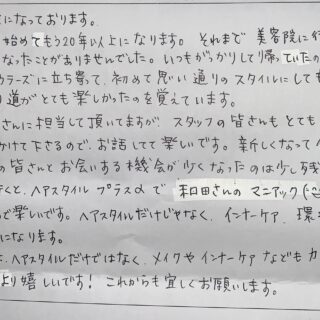 になっております。
始めてもう20年以上になります。それまで美容院に行
なったことがありませんでした。いつもがっかりして帰っていたの
カラーズに立ち寄って、初めて思い通りのスタイルにしても
り道がとても楽しかったのを覚えています。
さんに担当して頂いてますが スタッフの皆さんもとても
かけて下さるので、お話してて楽しいです。新しくなって
の皆さんとお会いする機会が少くなったのは少し残
くと、ヘアスタイル プラスαで 和田さんのマニアック(
で楽しいです。ヘアスタイルだけじゃなく、インナーケア、環
になります。
、ヘアスタイルだけではなく、メイクやインナーケアなども カ
より嬉しいです! これからも宜しくお願いします。